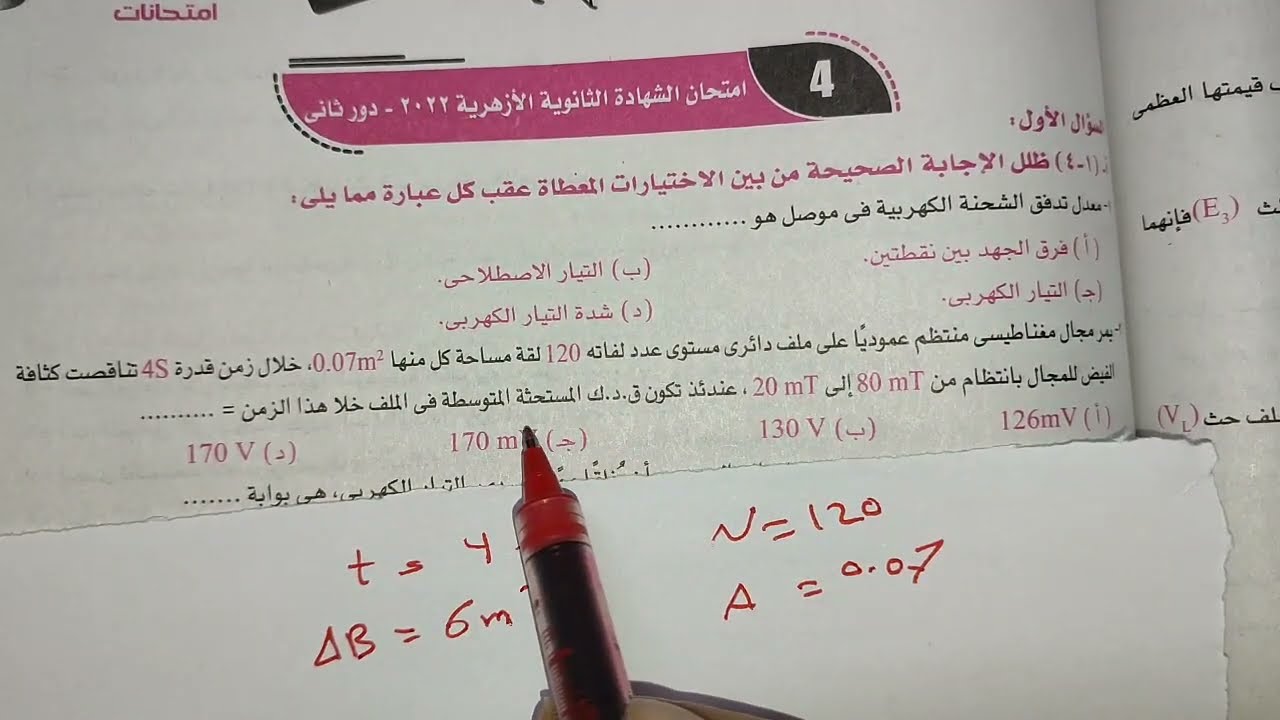 امتحانات
4
امتحان الشهادة الثانوية الأزهرية ٢٠٢٢ - دور ثانى
السؤال الأول:
(١-٤) ظلل الإجابة الصحيحة من بين الاختيارات المعطاة عقب كل عبارة مما يلى:
١- معدل تدفق الشحنة الكهربية فى موصل هو ............
(أ) فرق الجهد بين نقطتين.
(ب) التيار الاصطلاحى.
(جـ) التيار الكهربى.
(د) شدة التيار الكهربى.
يمر مجال مغناطيسى منتظم عموديًا على ملف دائرى مستوى عدد لفاته 120 لقة مساحة كل منها 0.07m²، خلال زمن قدرة 4S تناقصت كثافة
الفيض للمجال بانتظام من 80 mT إلى 20 mT ، عندئذ تكون ق.د.ك المستحثة المتوسطة فى الملف خلا هذا الزمن = ..........
(أ) 126mV
(ب) 130 V
(جـ) 170 m
(د) 170 V
التيار الكهربى، هى بوابة .......
t = 4
N = 120
ΔB = 6m
A = 0.07
قيمتها العظمى
(E₃) فإنهما
ملف حث (V_L)